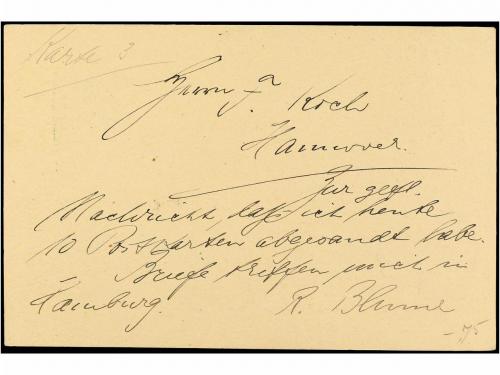 Karte 3
Herrn J. Koch
Hannover.
Zur gefl.
Nachricht, daß ich heute
10 Postkarten abgesandt habe.
Briefe treffen mich in
Hamburg.
R. Blume
-75